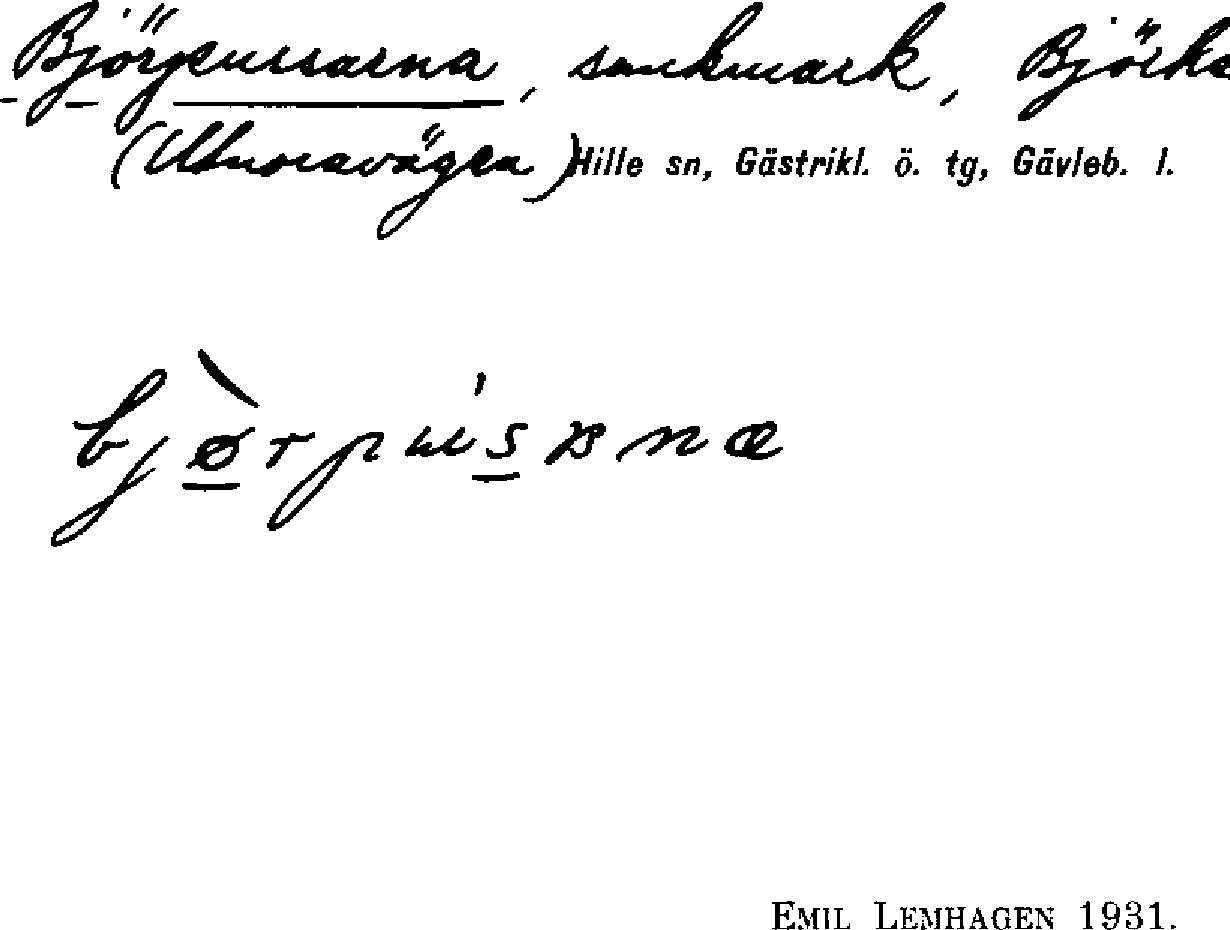 Björpussarna, sankmark, Björke
(Utnoravägen) Hille sn, Gästrikl. ö. tg, Gävleb. l.
EMIL LEMHAGEN 1931.